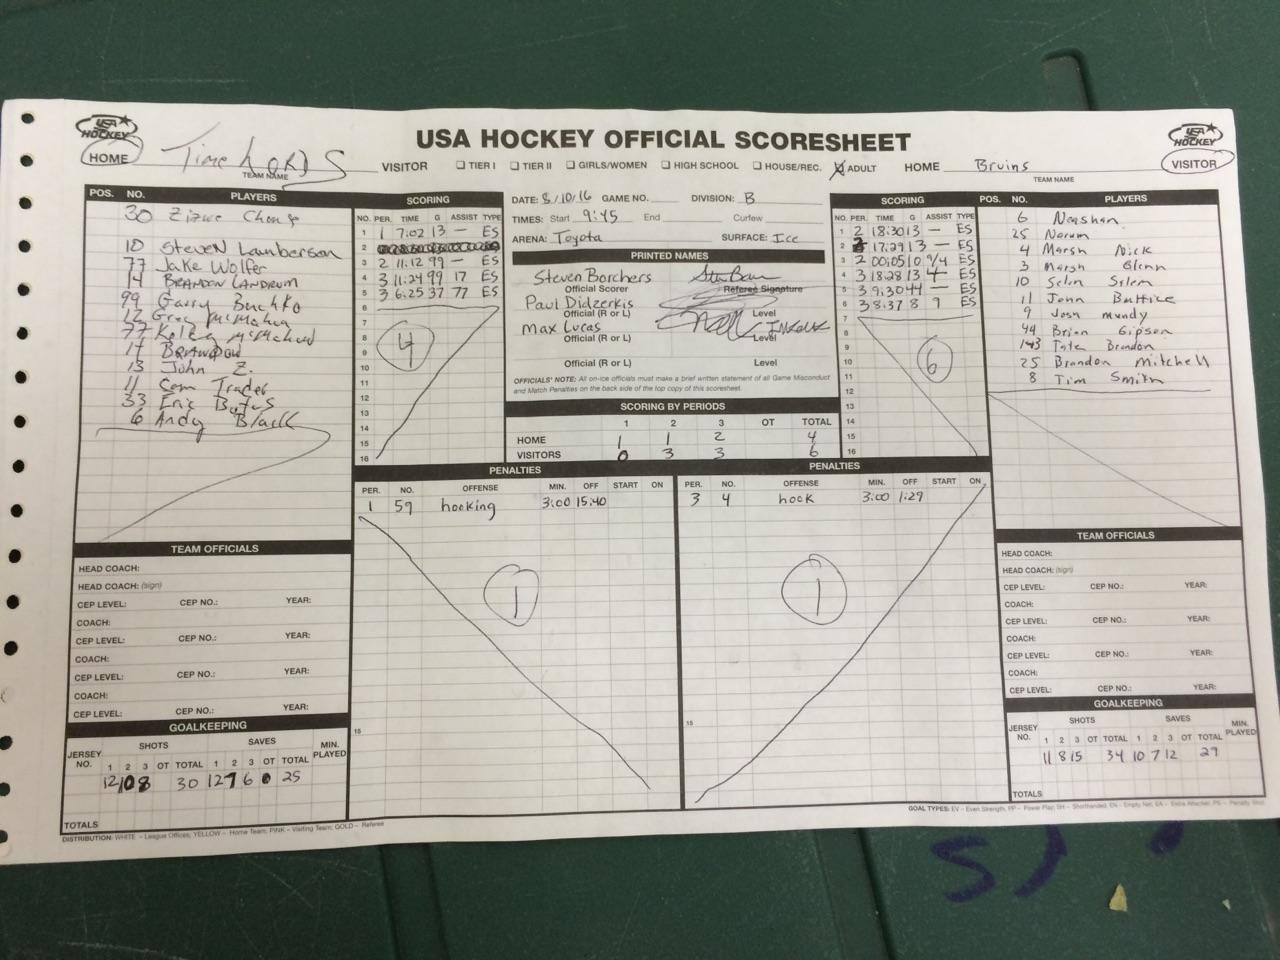 USA HOCKEY
USA HOCKEY OFFICIAL SCORESHEET
USA HOCKEY
HOME Time Lords VISITOR TIER I TIER II GIRLS/WOMEN HIGH SCHOOL HOUSE/REC. ADULT HOME Bruins VISITOR
TEAM NAME TEAM NAME
POS. NO. PLAYERS
30 Zizwe
10 Steven Lamberson
77 Jake Wolfer
14 BRANDON LANDRUM
99 Garry Buchko
12 Greg McMahon
77 Kelly McMahon
14 BRANDON
13 John Z.
11 Com Trades
33 Eric
6 Andy Black
SCORING
NO. PER. TIME G ASSIST TYPE
1 1 7:02 13 — ES
2
3 2 11:12 99 — ES
4 3 11:24 99 17 ES
5 3 6:25 37 77 ES
6
7
8
9
10
11
12
13
14
15
16
4
DATE: 8/10/16 GAME NO. DIVISION: B
TIMES: Start 9:45 End Curfew
ARENA: Toyota SURFACE: Ice
PRINTED NAMES
Steven Borchers
Official Scorer Referee Signature
Paul Didzerkis
Official (R or L) Level
Max Lucas
Official (R or L) Level
Official (R or L) Level
OFFICIALS' NOTE: All on-ice officials must make a brief written statement of all Game Misconduct
and Match Penalties on the back side of the top copy of this scoresheet.
SCORING BY PERIODS
1 2 3 OT TOTAL
HOME 1 1 2 4
VISITORS 0 3 3 6
SCORING
NO. PER. TIME G ASSIST TYPE
1 2 18:30 13 — ES
2 2 17:29 13 — ES
3 2 00:05 10 9/4 ES
4 3 18:28 13 4 ES
5 3 9:30 44 — ES
6 3 8:37 8 9 ES
7
8
9
10
11
12
13
14
15
16
6
POS. NO. PLAYERS
6 Neashan
25 Norum
4 Marsh Nick
3 Marsh Glenn
10 Selin Selem
11 John Buttice
9 Josh Mundy
44 Brian Gipson
Tate Brandon
25 Brandon Mitchell
8 Tim Smith
PENALTIES
PER. NO. OFFENSE MIN. OFF START ON
1 59 hooking 3:00 15:40
1
15
PENALTIES
PER. NO. OFFENSE MIN. OFF START ON
3 4 hook 3:00 1:29
1
15
TEAM OFFICIALS
HEAD COACH:
HEAD COACH: (sign)
CEP LEVEL: CEP NO.: YEAR:
COACH:
CEP LEVEL: CEP NO.: YEAR:
COACH:
CEP LEVEL: CEP NO.: YEAR:
COACH:
CEP LEVEL: CEP NO.: YEAR:
GOALKEEPING
JERSEY NO. SHOTS SAVES MIN. PLAYED
1 2 3 OT TOTAL 1 2 3 OT TOTAL
12 10 8 30 12 7 6 0 25
TOTALS
TEAM OFFICIALS
HEAD COACH:
HEAD COACH: (sign)
CEP LEVEL: CEP NO.: YEAR:
COACH:
CEP LEVEL: CEP NO.: YEAR:
COACH:
CEP LEVEL: CEP NO.: YEAR:
COACH:
CEP LEVEL: CEP NO.: YEAR:
GOALKEEPING
JERSEY NO. SHOTS SAVES MIN. PLAYED
1 2 3 OT TOTAL 1 2 3 OT TOTAL
11 8 15 34 10 7 12 29
TOTALS
DISTRIBUTION: WHITE – League Offices; YELLOW – Home Team; PINK – Visiting Team; GOLD – Referee
GOAL TYPES: EV – Even Strength, PP – Power Play, SH – Shorthanded, EN – Empty Net, EA – Extra Attacker, PS – Penalty Shot